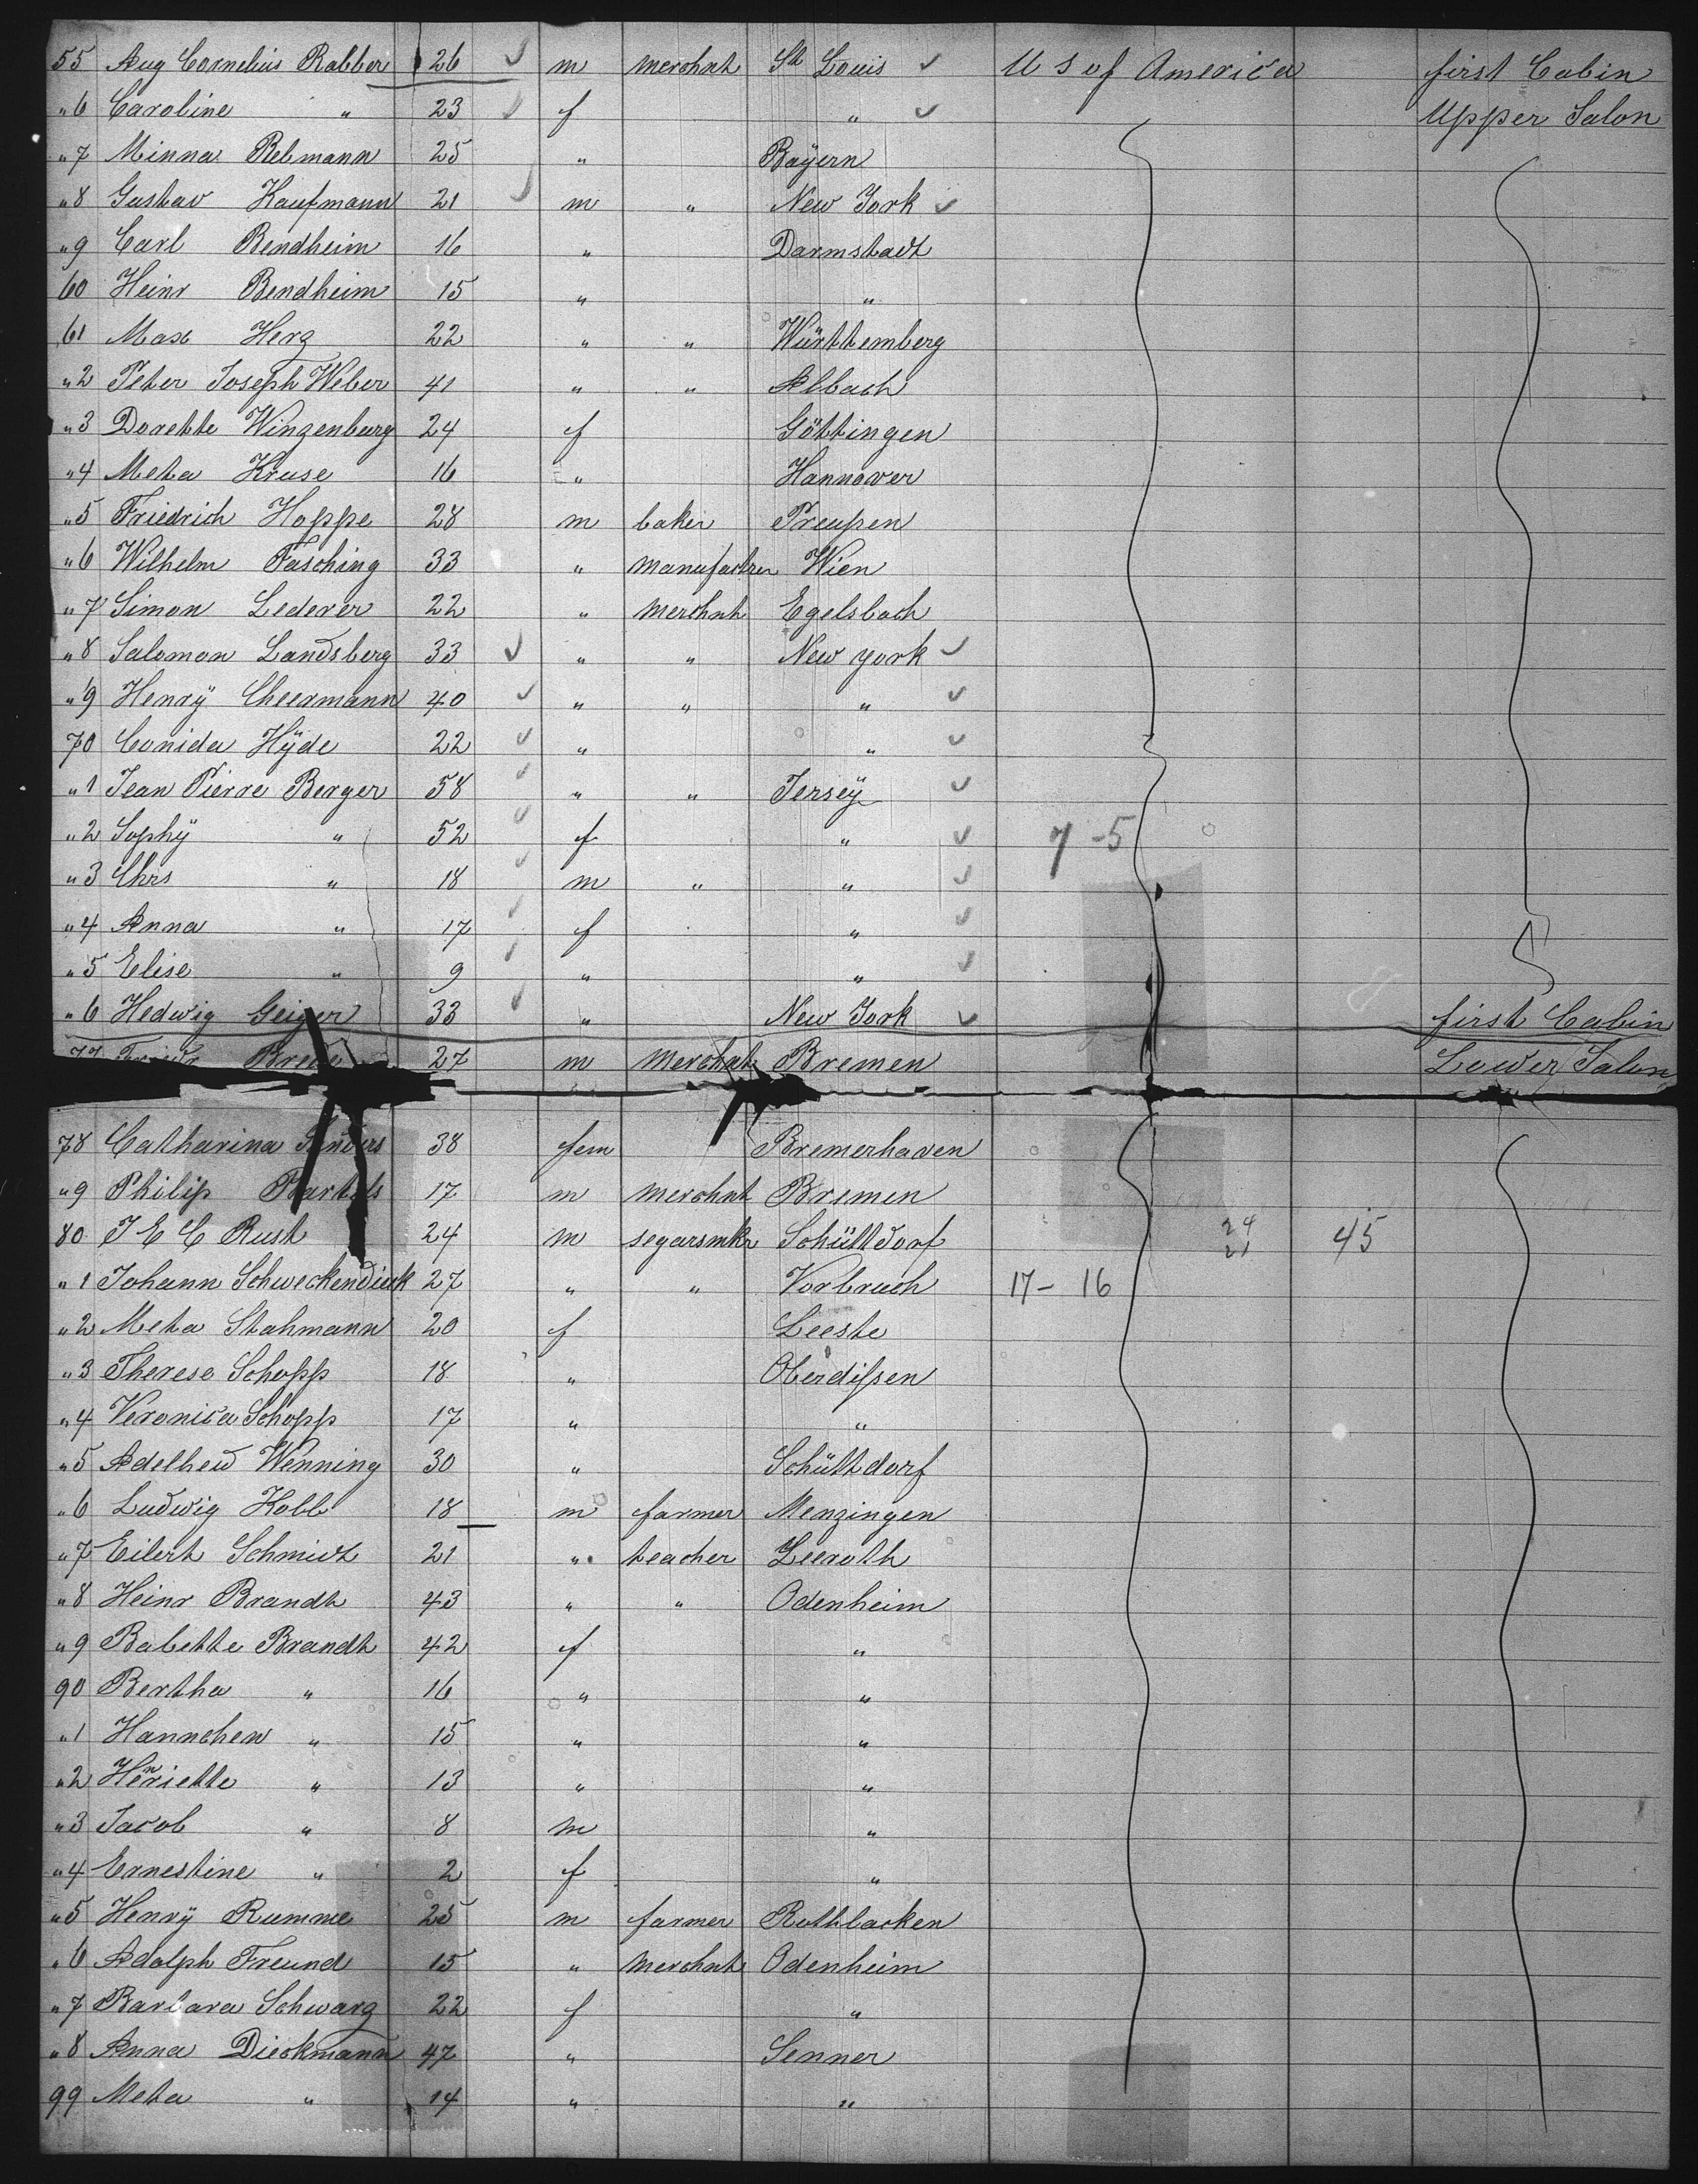 55 Aug Cornelius Rabber 26 ✓ m merchnt St Louis ✓ U S of America first Cabin
"6 Caroline " 23 ✓ f " ✓ Upper Salon
"7 Minna Rebmann 25 " Bayern
"8 Gustav Kaufmann 21 ✓ m " New York ✓
"9 Carl Bendheim 16 " Darmstadt
60 Heinr Bendheim 15 " "
61 Max Herz 22 " " Württemberg
"2 Peter Joseph Weber 41 " " Albach
"3 Dorette Winzenburg 24 f Göttingen
"4 Meta Kruse 16 " Hannover
"5 Friedrich Hoppe 28 m baker Preußen
"6 Wilhelm Fasching 33 " manufactrer Wien
"7 Simon Lederer 22 " merchnt Egelsbach
"8 Salomon Landsberg 33 ✓ " " New york ✓
"9 Henrÿ Cheermann 40 ✓ " " " ✓
70 Conida Hÿde 22 ✓ " " ✓
"1 Jean Pierre Berger 58 ✓ " " Jerseÿ ✓
"2 Sophÿ " 52 ✓ f " ✓ 7-5
"3 Chrs " 18 ✓ m " " ✓
"4 Anna " 17 ✓ f " ✓
"5 Elise " 9 ✓ " " ✓
"6 Hedwig Geiger 33 ✓ " New York ✓ first Cabin
77 Friedr Brede 27 m merchnt Bremen Lower Salon
78 Catharina 38 fem Bremerhaven
"9 Philip Bartels 17 m merchnt Bremen
80 J E C Rust 24 m segarsmkr Schüttdorf 24 21 45
"1 Johann Schweckendiek 27 " " Vorbruch 17-16
"2 Meta Stahmann 20 f Leeste
"3 Therese Schopp 18 " Oberdißen
"4 Veronica Schopp 17 " "
"5 Adelheid Wenning 30 " Schüttdorf
"6 Ludwig Kolb 18 m farmer Menzingen
"7 Eilert Schmidt 21 " teacher Leeroth
"8 Heinr Brandt 43 " " Odenheim
"9 Babette Brandt 42 f "
90 Bertha " 16 " "
"1 Hannchen " 15 " "
"2 Henriette " 13 " "
"3 Jacob " 8 m "
"4 Ernestine " 2 f "
"5 Henrÿ Rumme 25 m farmer Rothlacken
"6 Adolph Freund 15 " merchnt Odenheim
"7 Barbara Schwarz 22 f "
"8 Anna Dieckmann 47 " Senner
99 Meta " 14 " "